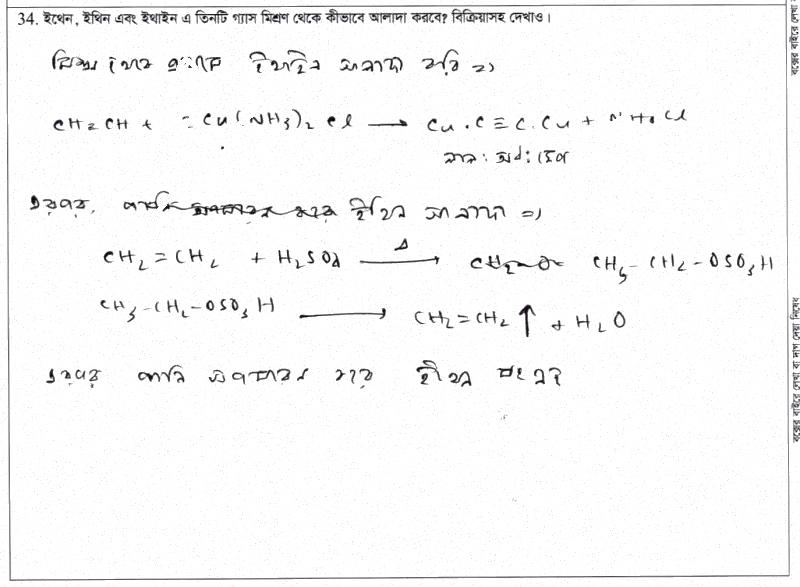 34. ইথেন, ইথিন এবং ইথাইন এ তিনটি গ্যাস মিশ্রণ থেকে কীভাবে আলাদা করবে? বিক্রিয়াসহ দেখাও।
মিশ্রণ থেকে প্রথমে ইথাইন আলাদা করি ⇒
CH≡CH + Cu(NH3)2 Cl → Cu.C≡C.Cu + NH4Cl
লাল: অধ:ক্ষেপ
এরপর, ইথিন আলাদা ⇒
CH2=CH2 + H2SO4 —Δ→ CH3-CH2-OSO3H
CH3-CH2-OSO3H → CH2=CH2↑ + H2O
এরপর পানি অপসারন করে ইথেন সংগ্রহ
বক্সের বাইরে লেখা বা দাগ দেয়া নিষেধ
বক্সের বাইরে লেখা